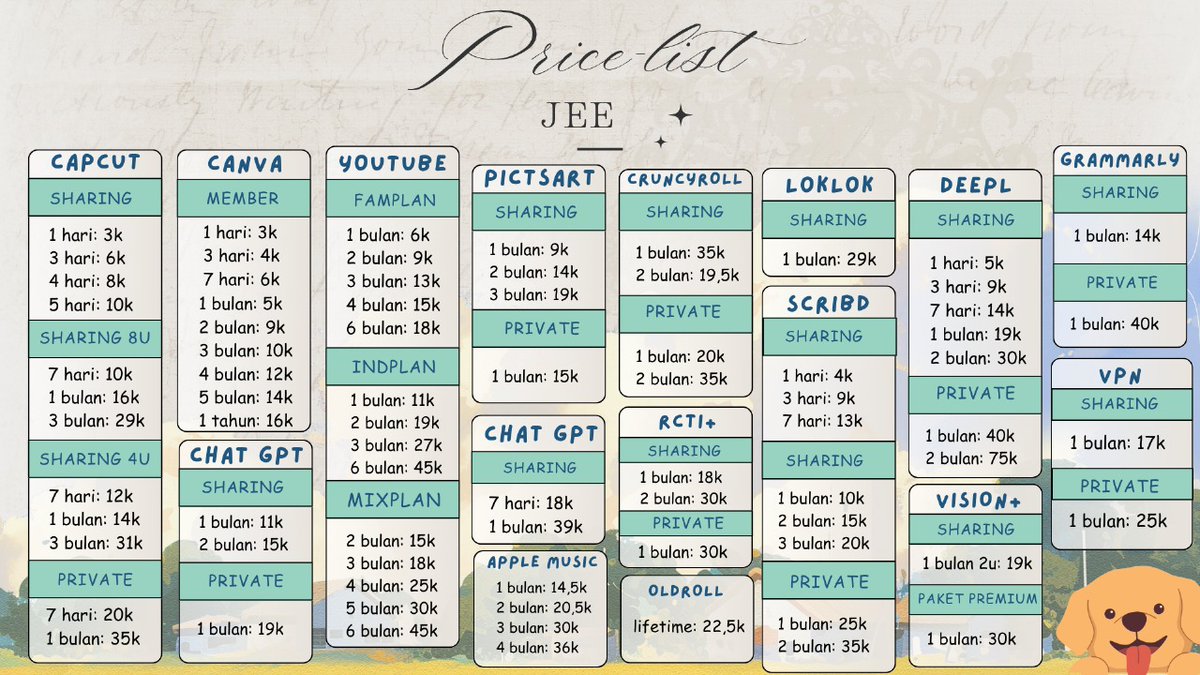 Price-list
JEE
CAPCUT
SHARING
1 hari: 3k
3 hari: 6k
4 hari: 8k
5 hari: 10k
SHARING 8U
7 hari: 10k
1 bulan: 16k
3 bulan: 29k
SHARING 4U
7 hari: 12k
1 bulan: 14k
3 bulan: 31k
PRIVATE
7 hari: 20k
1 bulan: 35k
CANVA
MEMBER
1 hari: 3k
3 hari: 4k
7 hari: 6k
1 bulan: 5k
2 bulan: 9k
3 bulan: 10k
4 bulan: 12k
5 bulan: 14k
1 tahun: 16k
CHAT GPT
SHARING
1 bulan: 11k
2 bulan: 15k
PRIVATE
1 bulan: 19k
YOUTUBE
FAMPLAN
1 bulan: 6k
2 bulan: 9k
3 bulan: 13k
4 bulan: 15k
6 bulan: 18k
INDPLAN
1 bulan: 11k
2 bulan: 19k
3 bulan: 27k
6 bulan: 45k
MIXPLAN
2 bulan: 15k
3 bulan: 18k
4 bulan: 25k
5 bulan: 30k
6 bulan: 45k
PICTSART
SHARING
1 bulan: 9k
2 bulan: 14k
3 bulan: 19k
PRIVATE
1 bulan: 15k
CHAT GPT
SHARING
7 hari: 18k
1 bulan: 39k
APPLE MUSIC
1 bulan: 14,5k
2 bulan: 20,5k
3 bulan: 30k
4 bulan: 36k
CRUNCYROLL
SHARING
1 bulan: 35k
2 bulan: 19,5k
PRIVATE
1 bulan: 20k
2 bulan: 35k
RCTI+
SHARING
1 bulan: 18k
2 bulan: 30k
PRIVATE
1 bulan: 30k
OLDROLL
lifetime: 22,5k
LOKLOK
SHARING
1 bulan: 29k
SCRIBD
SHARING
1 hari: 4k
3 hari: 9k
7 hari: 13k
SHARING
1 bulan: 10k
2 bulan: 15k
3 bulan: 20k
PRIVATE
1 bulan: 25k
2 bulan: 35k
DEEPL
SHARING
1 hari: 5k
3 hari: 9k
7 hari: 14k
1 bulan: 19k
2 bulan: 30k
PRIVATE
1 bulan: 40k
2 bulan: 75k
VISION+
SHARING
1 bulan 2u: 19k
PAKET PREMIUM
1 bulan: 30k
GRAMMARLY
SHARING
1 bulan: 14k
PRIVATE
1 bulan: 40k
VPN
SHARING
1 bulan: 17k
PRIVATE
1 bulan: 25k